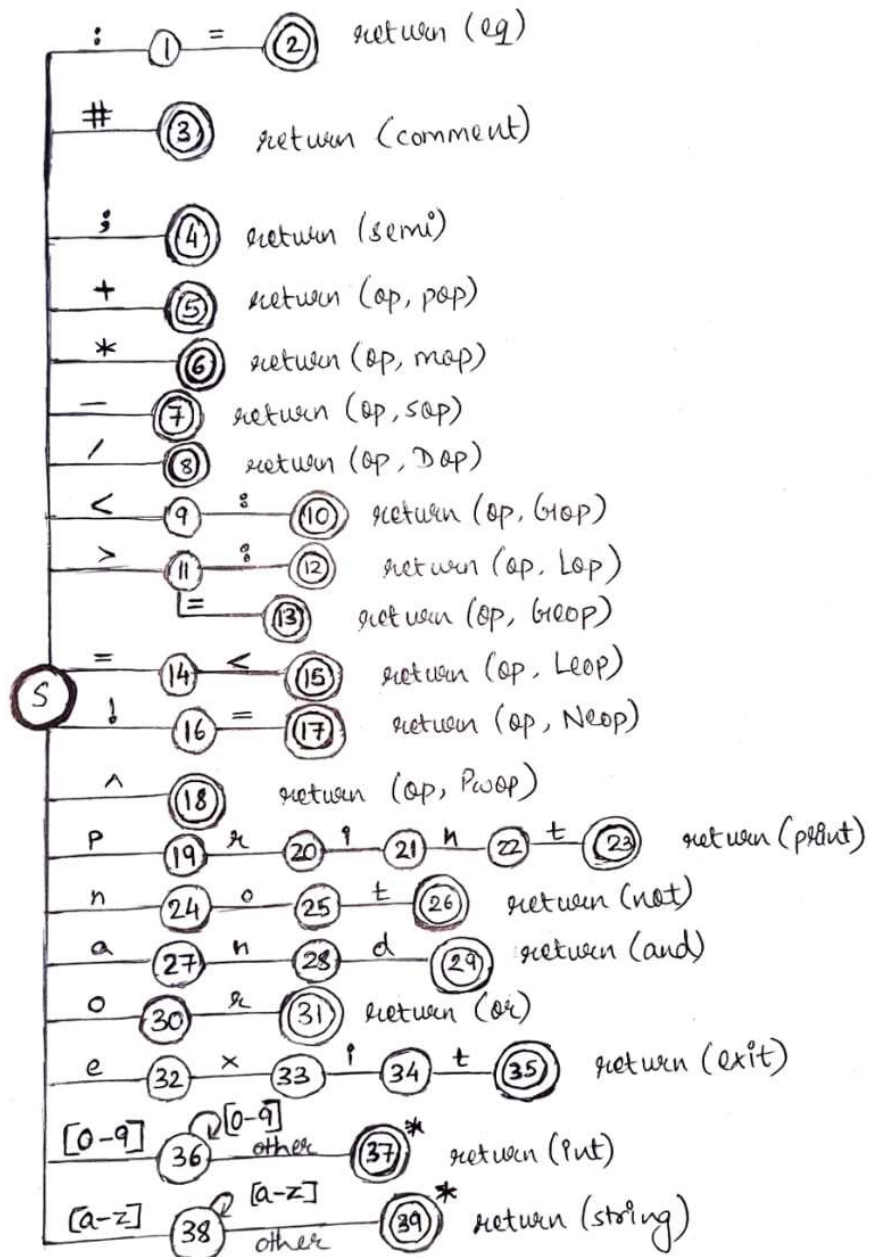 : 1 = 2 return (eq)
# 3 return (comment)
; 4 return (semi)
+ 5 return (op, pop)
* 6 return (op, mop)
− 7 return (op, sop)
/ 8 return (op, Dop)
< 9 : 10 return (op, Grop)
> 11 : 12 return (op, Lop)
= 13 return (op, Greop)
S = 14 < 15 return (op, Leop)
! 16 = 17 return (op, Neop)
^ 18 return (op, Pwop)
P 19 r 20 i 21 n 22 t 23 return (print)
n 24 o 25 t 26 return (not)
a 27 n 28 d 29 return (and)
o 30 r 31 return (or)
e 32 x 33 i 34 t 35 return (exit)
[0-9] 36 [0-9] other 37 * return (int)
[a-z] 38 [a-z] other 39 * return (string)